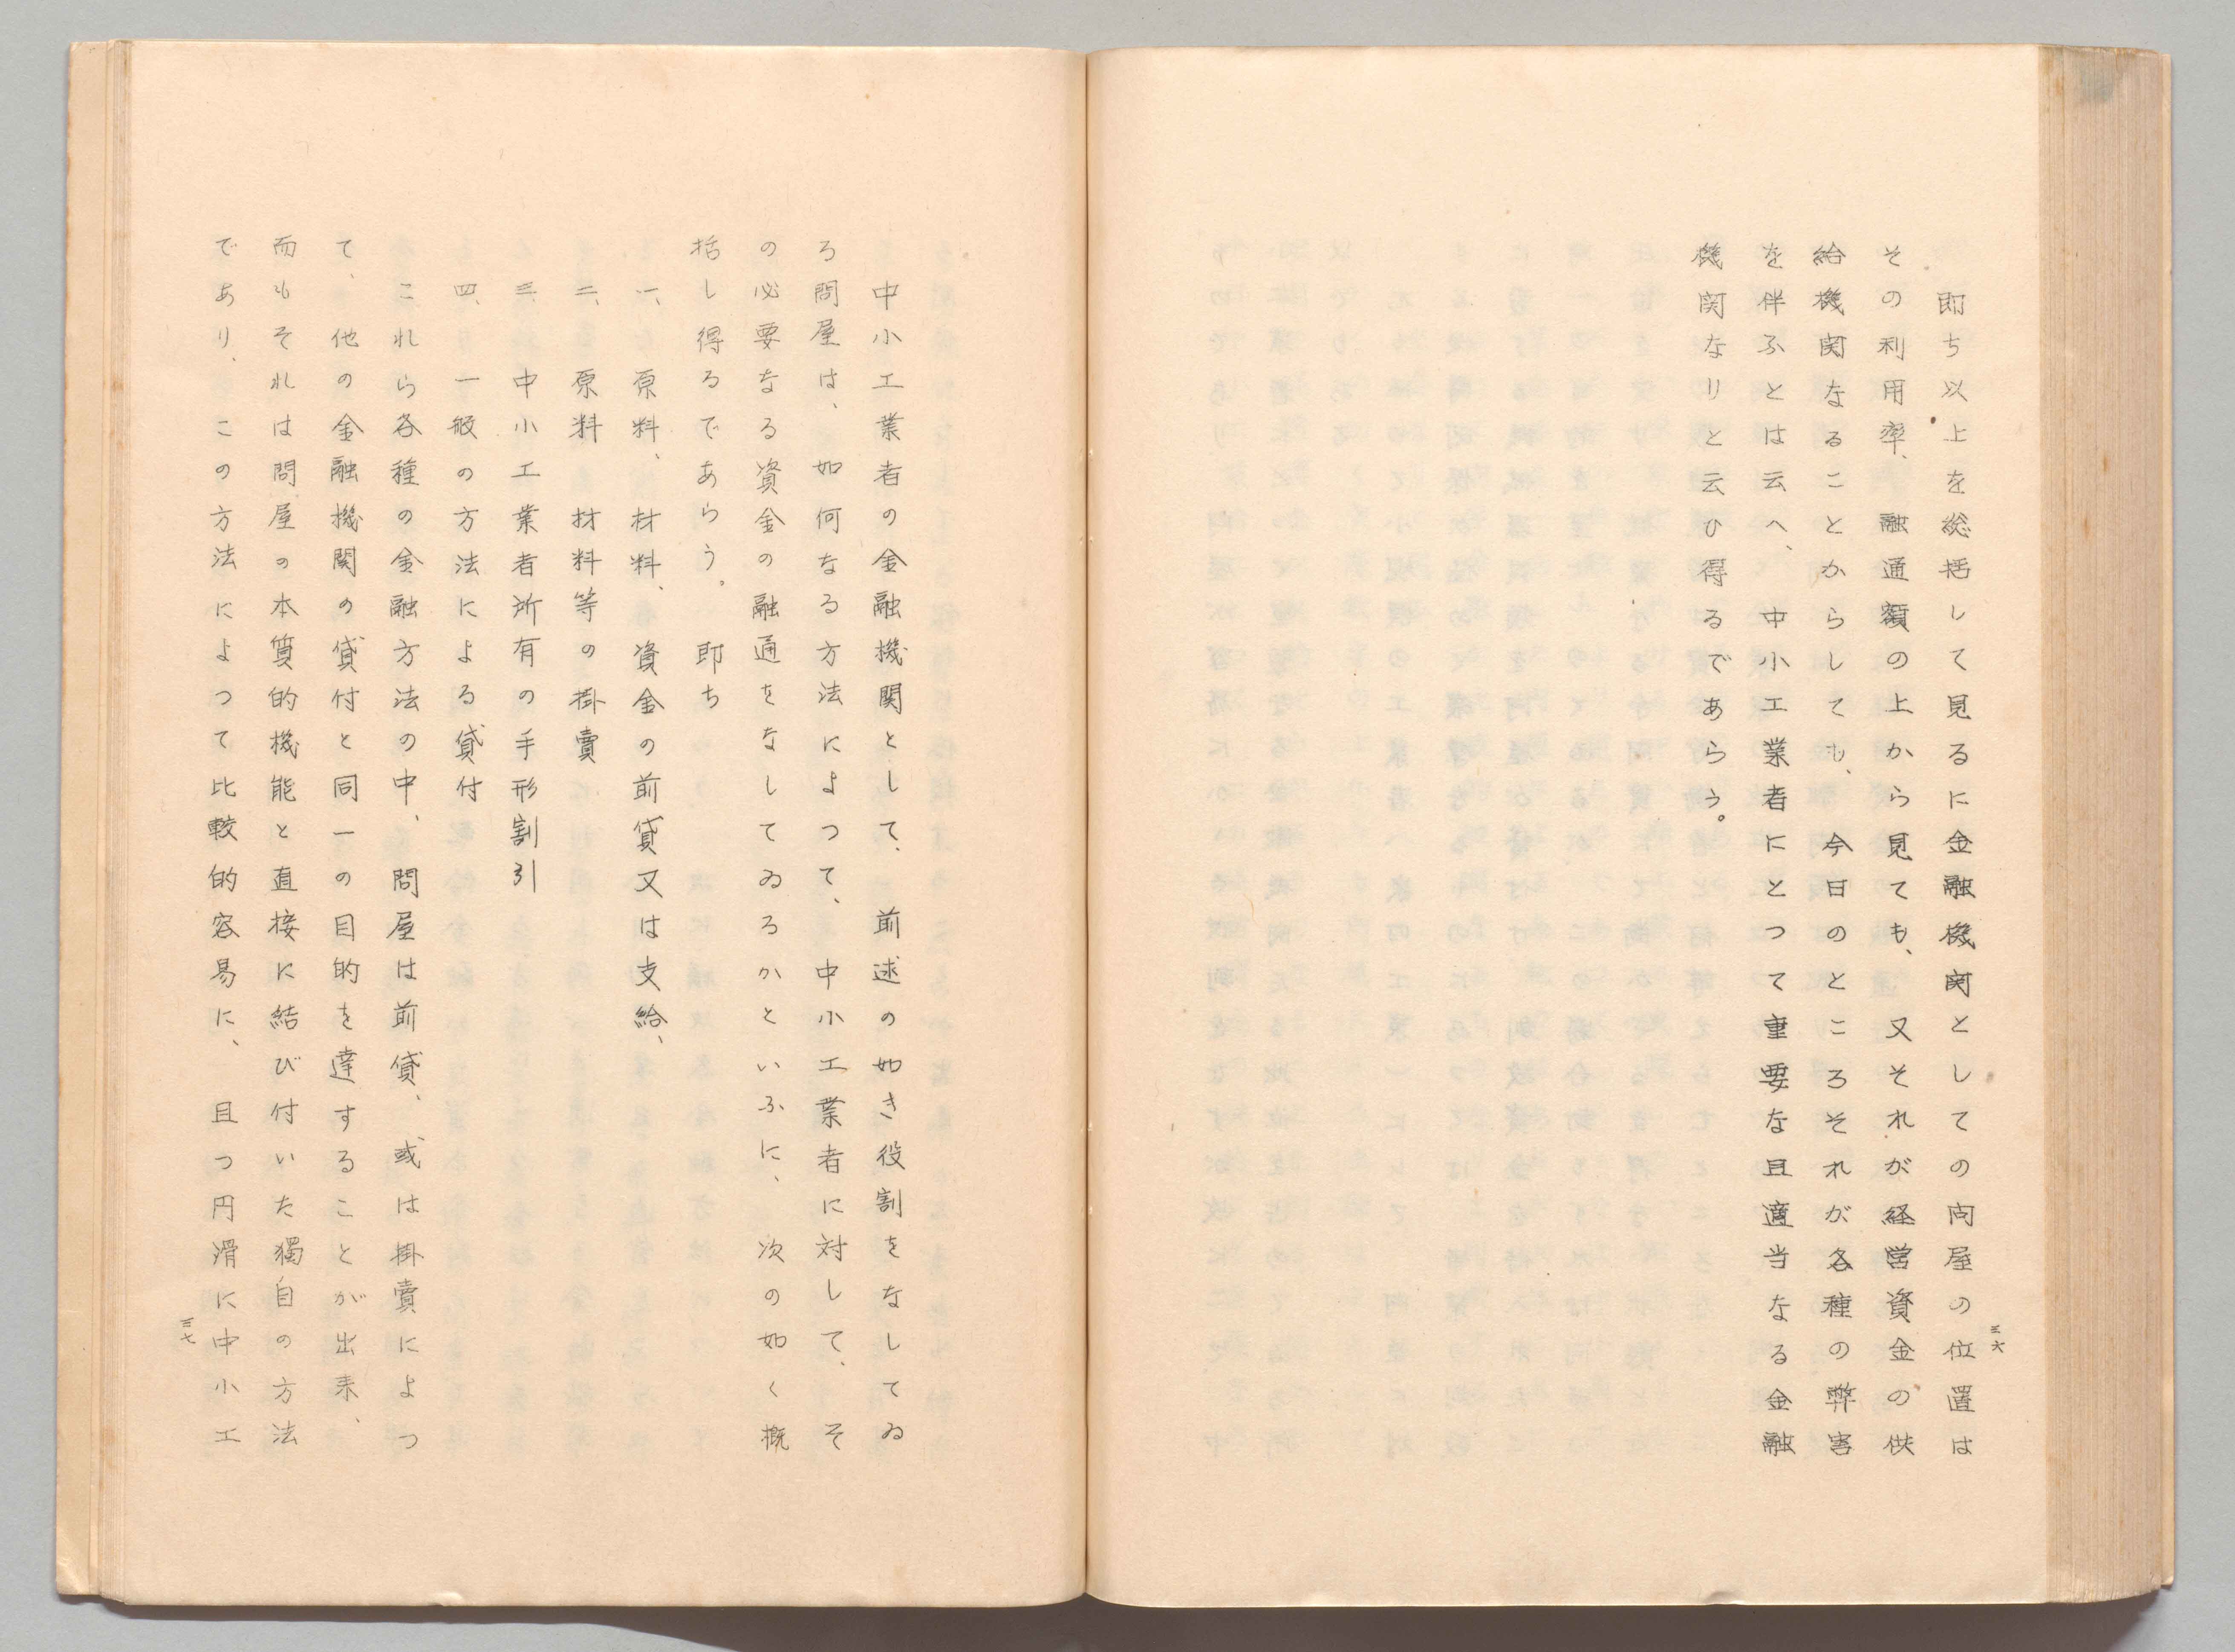 即ち以上を総括して見るに金融機関としての問屋の位置は
その利用率、融通額の上から見ても、又それが経営資金の供
給機関なることからしても、今日のところそれが各種の弊害
を伴ふとは云へ、中小工業者にとつて重要な且適当なる金融
機関なりと云ひ得るであらう。
三六
中小工業者の金融機関として、前述の如き役割をなしてゐ
る問屋は、如何なる方法によつて、中小工業者に対して、そ
の必要なる資金の融通をなしてゐるかといふに、次の如く概
括し得るであらう。即ち
一、原料、材料、資金の前貸又は支給、
二、原料、材料等の掛賣
三、中小工業者所有の手形割引
四、一般の方法による貸付
これら各種の金融方法の中、問屋は前貸、或は掛賣によつ
て、他の金融機関の貸付と同一の目的を達することが出来、
而もそれは問屋の本質的機能と直接に結び付いた獨自の方法
であり、この方法によつて比較的容易に、且つ円滑に中小工
三七